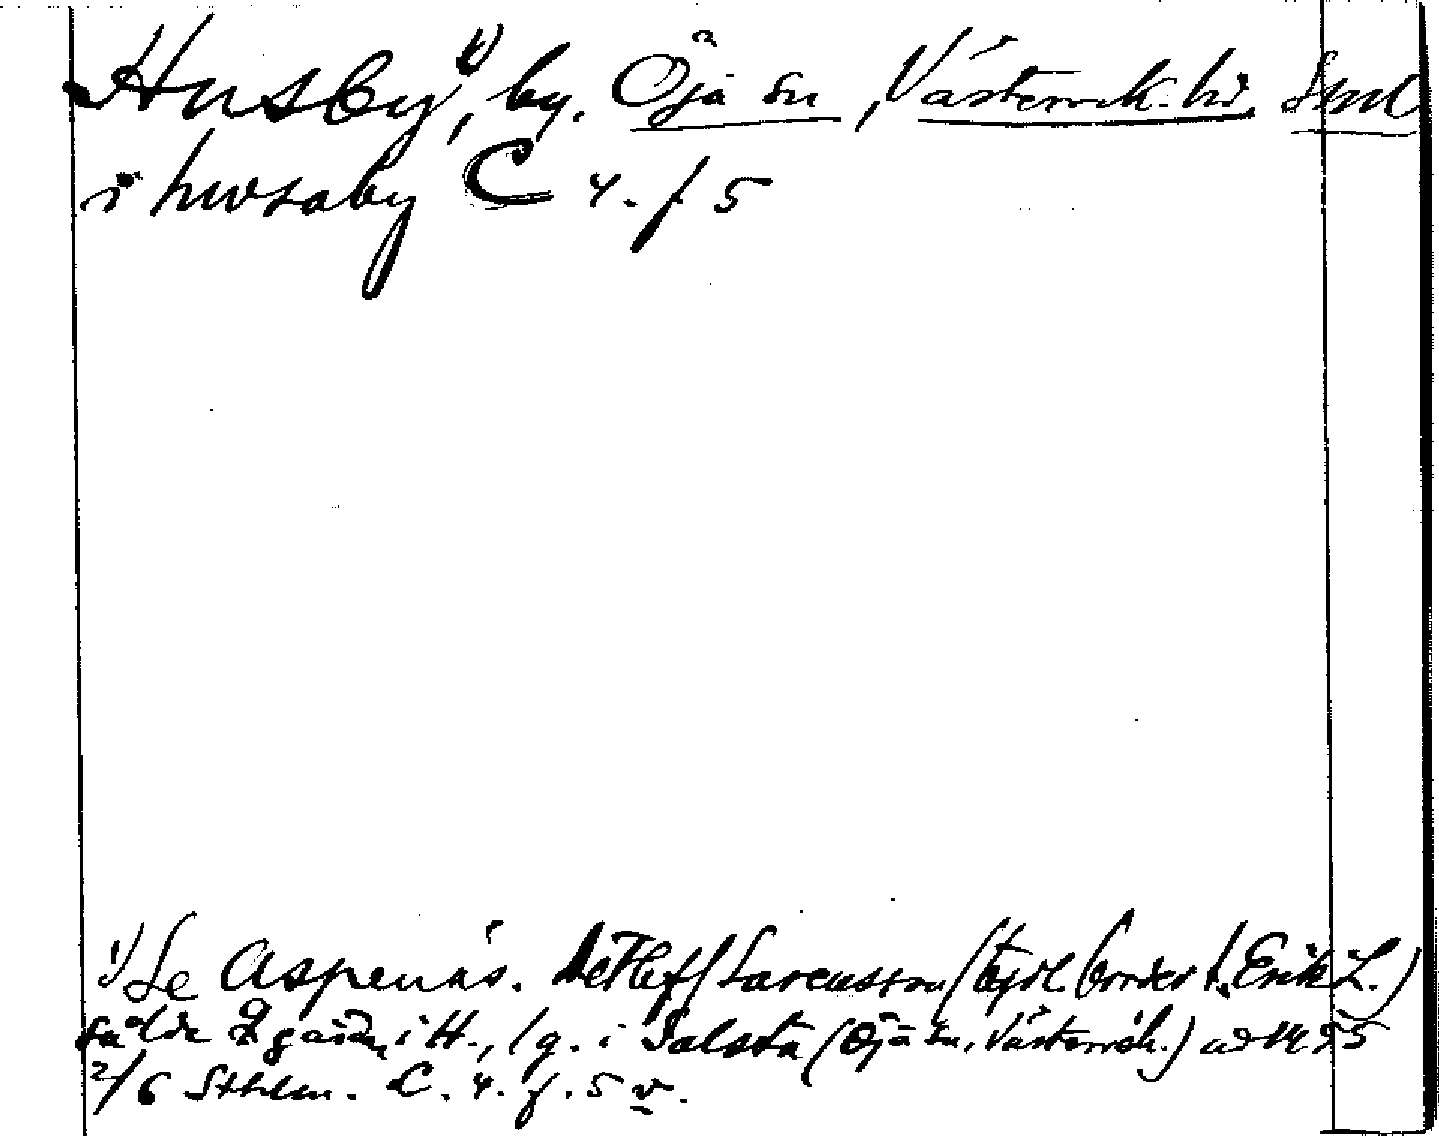 Husby¹⁾, by. Öja sn, Västervik. hd. Sml
i hwsaby C 4. f 5
¹⁾ Se Aspenäs. Detlef Larensson (tydl. broder t. Erik L.)
sålde 2 gårdar i H., 1 g. i Salsta (Öja sn, Västervik.) ad 1495
2/6 Sthlm. C. 4. f. 5 v.